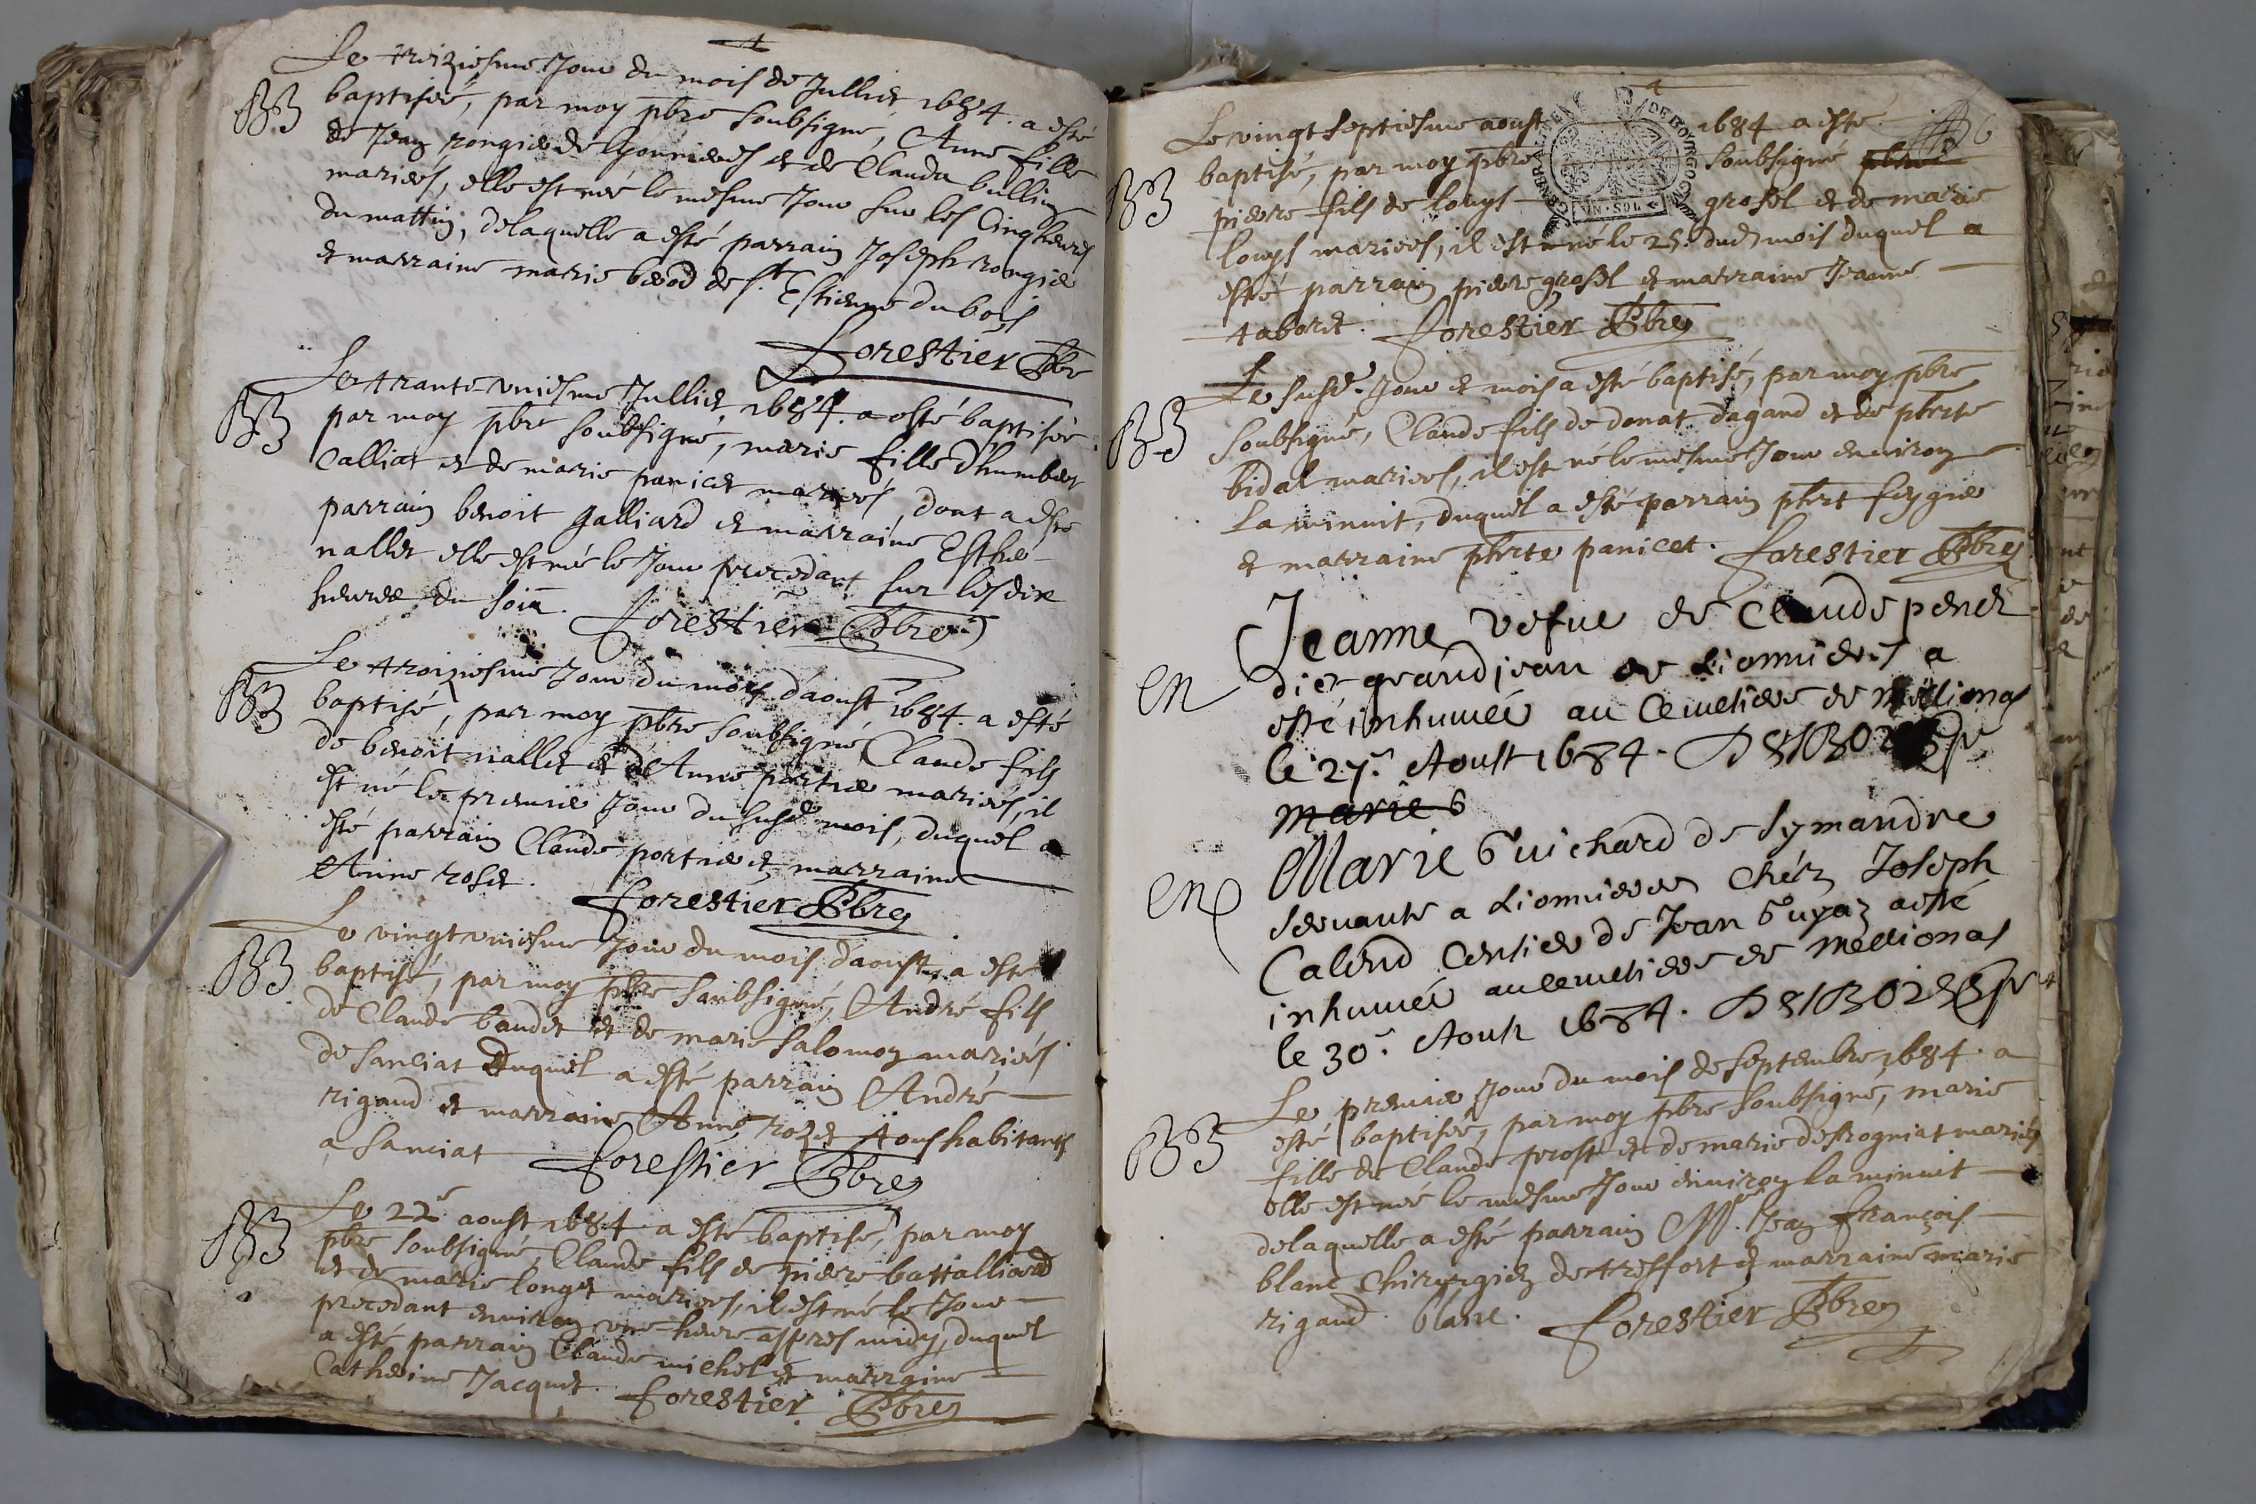 Le treiziesme Jour du mois de Jullier 1684. a esté
BB baptiseé, par moy pbre soubsigné, Anne fille
de Jean rongier de lyonnieres et de Clauda bullin
marieés, elle est neé le mesme Jour sur les Cinq heures
du mattin, delaquelle a esté parrain Joseph rongier
et marraine marie de st Estienne du bois
forestier Pbre
Le trante-uniesme Jullier 1684. a esté baptiseé
BB par moy pbre soubsigné, marie fille d'humbert
Calliat et de marie panicet marieés, dont a esté
parrain benoit galliard et marraine Esthe-
nallet elle est neé le Jour precedant sur les dix
heures du soir. forestier Pbre
Le troiziesme Jour du mois d'aoust 1684. a esté
BB baptisé, par moy pbre soubsigné, Claude fils
de benoit nallet et de Anne portier marieés, il
est né le premier Jour du susd mois, duquel a
esté parrain Claude portier et marraine
Anne roset. forestier Pbre
Le vingt uniesme Jour du mois d'aoust, a esté
BB baptisé, par moy pbre soubsigné, André fils
de Claude baudet et de marie salomon marieés
de sanciat duquel a esté parrain André
rigaud et marraine Anne rozet tous habitants
a sanciat forestier Pbre
Le 22e aoust 1684 a esté baptisé, par moy
BB pbre soubsigné Claude fils de pierre battalliard
et de marie longet marieés, il est né le Jour
precedant environ une heure appres midy, duquel
a esté parrain Claude michel et marraine
Catherine Jacquet. forestier Pbre
Le vingt septiesme aoust 1684 a esté
BB baptisé, par moy pbre soubsigné pbre
pierre fils de louys grosel et de marie
louys marieés, il est né le 25. dud mois duquel a
esté parrain pierre grosel et marraine Jeanne
taboret. forestier Pbre
Le susd. Jour et mois a esté baptisé, par moy pbre
BB soubsigné, Claude fils de donat dagand et de pbrte
bidal marieés, il est né le mesme Jour environ
La minuit, duquel a esté parrain pbrt
et marraine pbrte panicet. forestier Pbre
Jeanne vefue de Claude penet
en dit grandjean de Lionnieres a
esté inhumeé au Cemetiere de Meillionas
le 27. Aoust 1684. DESBOIS
marie G
Marie Guichard de symandre
en servante a Lionnieres Chéz Joseph
Calend Censier de Jean Guyaz a esté
inhumeé au cemetiere de Meillionas
le 30. Aoust 1684. DESBOIS
Le premier Jour du mois de septembre 1684. a
BB esté baptiseé, par moy pbre soubsigné, marie
fille de Claude prost et de marie desrogniat mariés
elle est neé le mesme Jour environ la minuit
delaquelle a esté parrain Mr. Jean françois
blanc Chirurgien de tresfort et marraine marie
rigaud. blanc. forestier Pbre